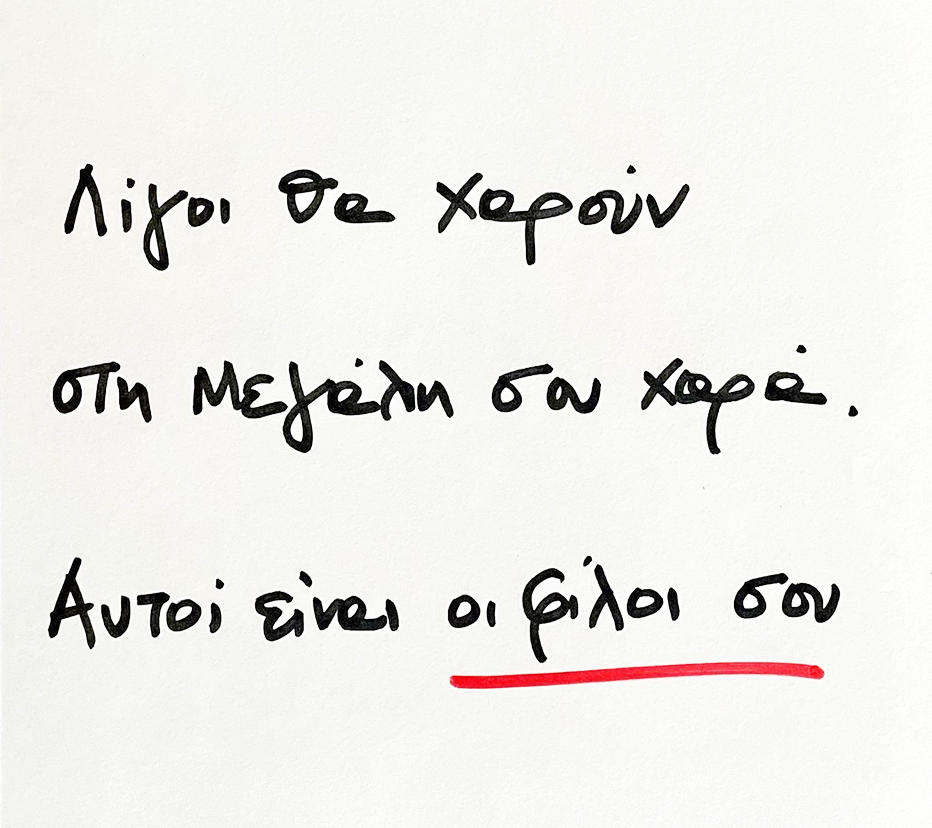 Λίγοι θα χαρούν
στη Μεγάλη σου χαρά.
Αυτοί είναι οι φίλοι σου